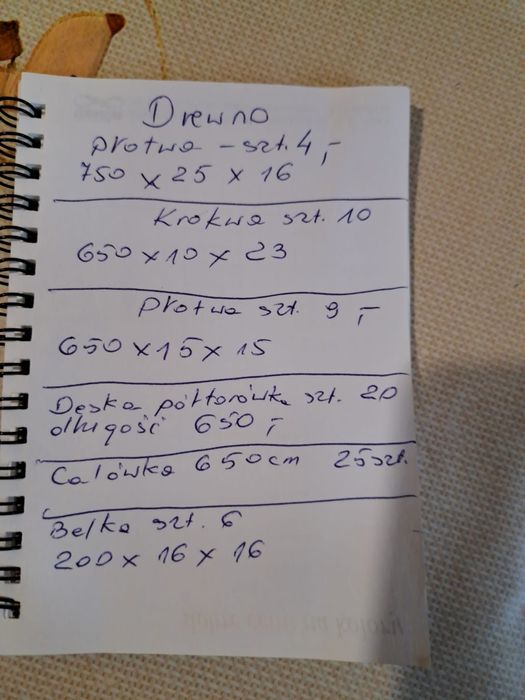 Drewno
płotwa - szt. 4,-
750 x 25 x 16
Krokwa szt. 10
650 x 10 x 23
płotwa szt. 9,-
650 x 15 x 15
Deska półtorówka szt. 20
długość 650,-
Calówka 650cm 25szt.
Belka szt. 6
200 x 16 x 16